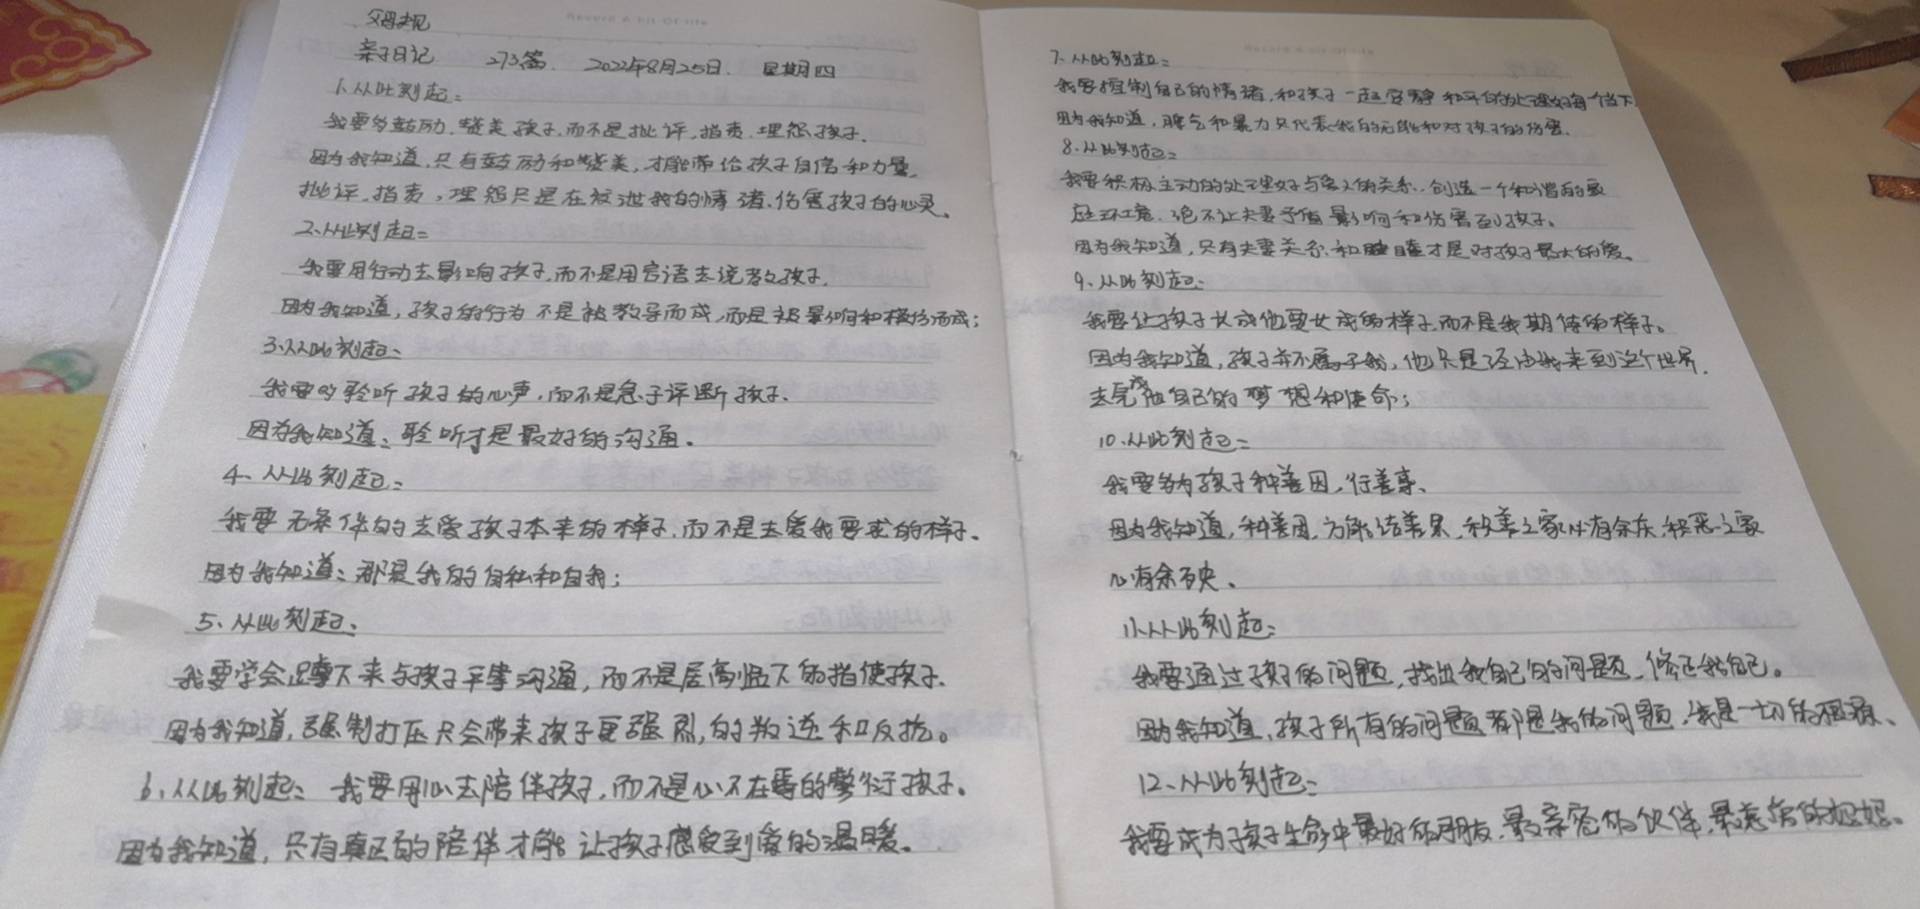 父母规
亲子日记 273篇. 2022年8月25日. 星期四
1.从此刻起:
我要多鼓励.赞美孩子,而不是批评,指责.埋怨孩子.
因为我知道,只有鼓励和赞美,才能带给孩子自信和力量,
批评,指责,埋怨只是在发泄我的情绪.伤害孩子的心灵。
2.从此刻起:
我要用行动去影响孩子,而不是用言语去说教孩子.
因为我知道,孩子的行为不是被教导而成,而是被影响和模仿而成;
3.从此刻起:
我要多聆听孩子的心声,而不是急于评断孩子.
因为我知道:聆听才是最好的沟通。
4、从此刻起:
我要无条件的去爱孩子本来的样子,而不是去爱我要求的样子。
因为我知道:那是我的自私和自我;
5、从此刻起:
我要学会蹲下来与孩子平等沟通,而不是居高临下的指使孩子.
因为我知道,强制打压只会带来孩子更强烈,的叛逆和反抗。
6、从此刻起:我要用心去陪伴孩子,而不是心不在焉的敷衍孩子。
因为我知道,只有真正的陪伴才能让孩子感受到爱的温暖。
7、从此刻起:
我要控制自己的情绪,和孩子一起安静和平的处理好每个当下
因为我知道,脾气和暴力只代表我的无能和对孩子的伤害.
8.从此刻起:
我要积极主动的处理好与爱人的关系.创造一个和谐的家
庭环境.绝不让夫妻矛盾影响和伤害到孩子。
因为我知道,只有夫妻关系和睦才是对孩子最大的爱。
9、从此刻起:
我要让孩子长成他要长成的样子,而不是我期待的样子。
因为我知道,孩子并不属于我,他只是经由我来到这个世界,
去完成他自己的梦想和使命;
10.从此刻起:
我要多为孩子种善因,行善事、
因为我知道,种善因,方能结善果,积善之家必有余庆,积恶之家
必有余殃、
11.从此刻起:
我要通过孩子的问题,找出我自己的问题,修正我自己。
因为我知道,孩子所有的问题都是我的问题,我是一切的根源、
12、从此刻起:
我要成为孩子生命中最好的朋友,最亲密的伙伴,最慈爱的妈妈。